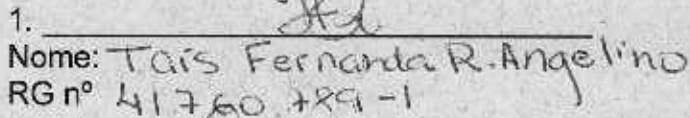 1.
Nome: Tais Fernanda R. Angelino
RG nº 41760.789-1